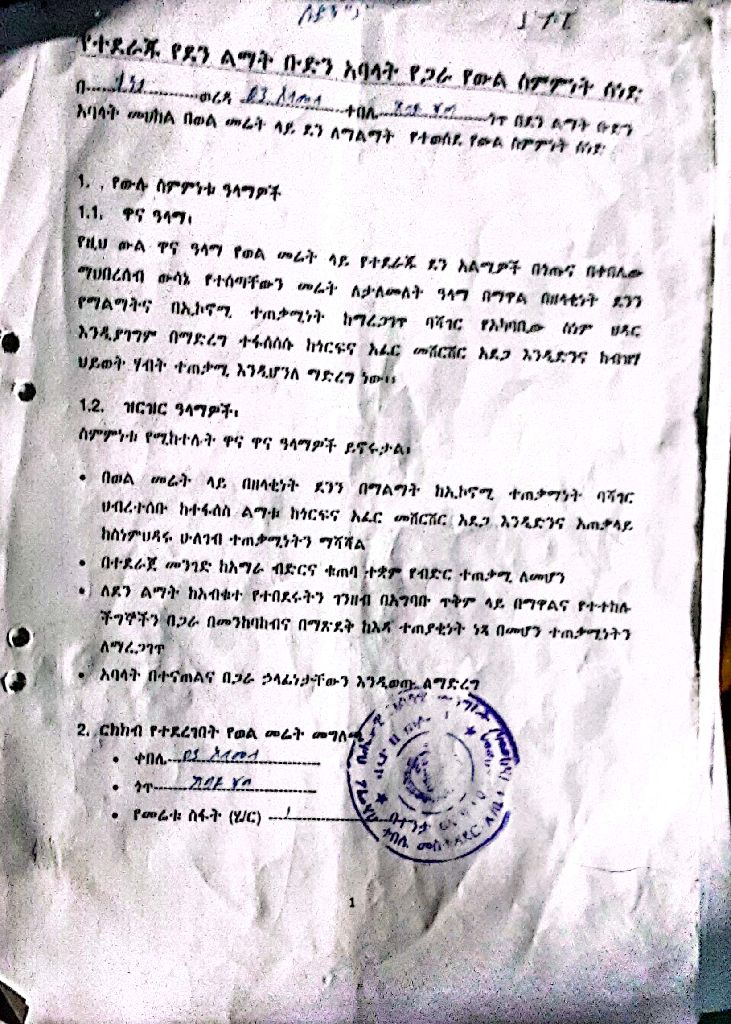 የተደራጁ የደን ልማት ቡድን አባላት የጋራ የውል ስምምነት ሰነድ
በ.......... ወረዳ .......... ቀበሌ .......... ጎጥ በደን ልማት ቡድን
አባላት መሀከል በወል መሬት ላይ ደን ለማልማት የተወሰደ የውል ስምምነት ሰነድ
1. የውሉ ስምምነቱ ዓላማዎች
1.1. ዋና ዓላማ፣
የዚህ ውል ዋና ዓላማ የወል መሬት ላይ የተደራጁ ደን አልሚዎች በጎጡና በቀበሌው
ማህበረሰብ ውሳኔ የተሰጣቸውን መሬት ለታለመለት ዓላማ በማዋል በዘላቂነት ደንን
የማልማትና በኢኮኖሚ ተጠቃሚነት ከማረጋገጥ ባሻገር የአካባቢው ስነ ምህዳር
እንዲያገግም በማድረግ ተፋሰሱ ከጎርፍና አፈር መሸርሸር አደጋ እንዲድንና ከብዝሃ
ህይወት ሃብት ተጠቃሚ እንዲሆን ማድረግ ነው፡፡
1.2. ዝርዝር ዓላማዎች፣
ስምምነቱ የሚከተሉት ዋና ዋና ዓላማዎች ይኖሩታል፣
• በወል መሬት ላይ በዘላቂነት ደንን በማልማት ከኢኮኖሚ ተጠቃማነት ባሻገር
ህብረተሰቡ ከተፋሰስ ልማቱ ከጎርፍና አፈር መሸርሸር አደጋ እንዲድንና አጠቃላይ
ከስነምህዳሩ ሁለገብ ተጠቃሚነትን ማሻሻል
• በተደራጀ መንገድ ከአማራ ብድርና ቁጠባ ተቋም የብድር ተጠቃሚ ለመሆን
• ለደን ልማት ከአብቁተ የተበደሩትን ገንዘብ በአግባቡ ጥቅም ላይ በማዋልና የተተከሉ
ችግኞችን በጋራ በመንከባከብና በማጽደቅ ከእዳ ተጠያቂነት ነጻ በመሆን ተጠቃሚነትን
ለማረጋገጥ
• አባላት በተናጠልና በጋራ ኃላፊነታቸውን እንዲወጡ ልማድረግ
2. ርክክብ የተደረገበት የወል መሬት መግለጫ
• ቀበሌ
• ጎጥ
• የመሬቱ ስፋት (ሄ/ር)
1